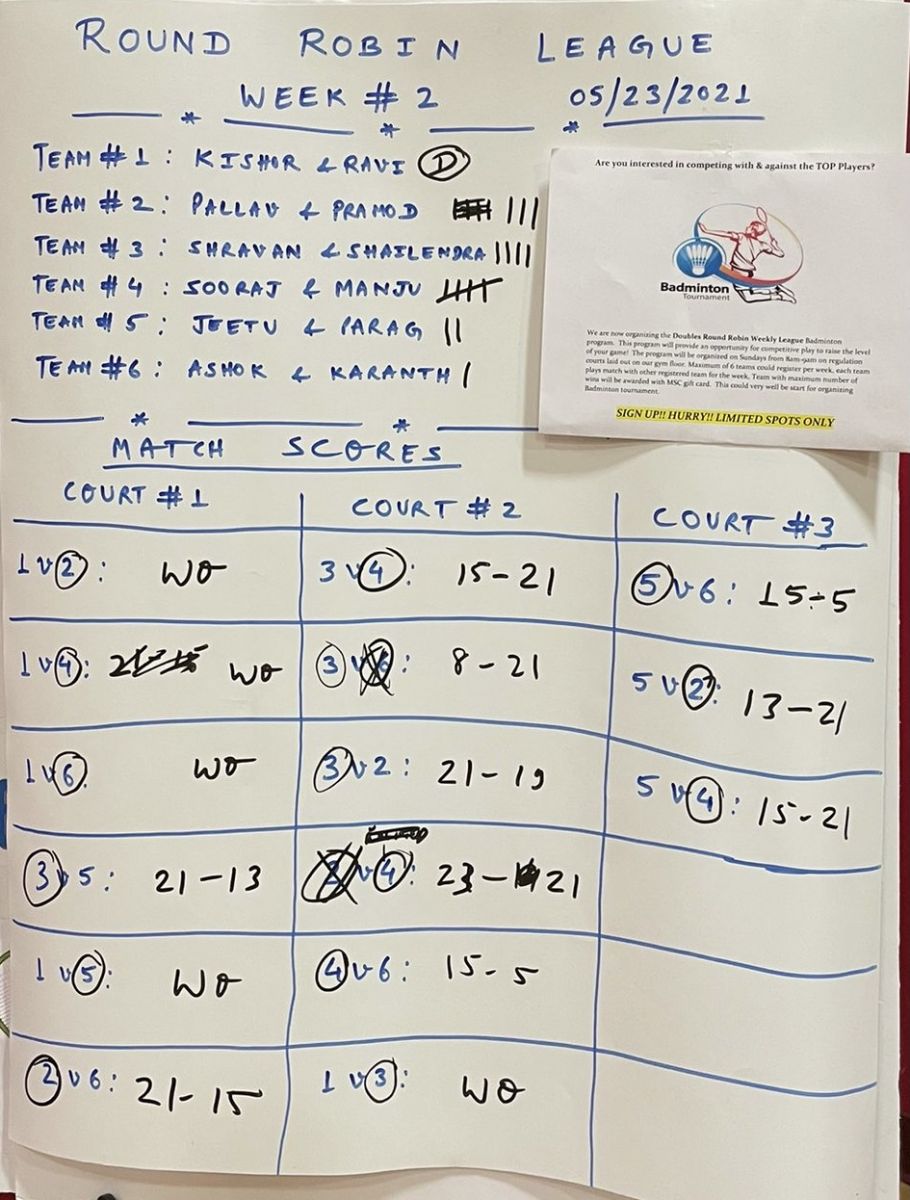 ROUND ROBIN LEAGUE
WEEK # 2 05/23/2021
TEAM # 1 : KISHOR & RAVI D
TEAM # 2 : PALLAV & PRAMOD |||
TEAM # 3 : SHRAVAN & SHAILENDRA ||||
TEAM # 4 : SOORAJ & MANJU
TEAM # 5 : JEETU & PARAG ||
TEAM #6 : ASHOK & KARANTH |
Are you interested in competing with & against the TOP Players?
Badminton
Tournament
We are now organizing the Doubles Round Robin Weekly League Badminton
program. This program will provide an opportunity for competitive play to raise the level
of your game! The program will be organized on Sundays from 8am-9am on regulation
courts laid out on our gym floor. Maximum of 6 teams could register per week, each team
plays match with other registered team for the week. Team with maximum number of
wins will be awarded with MSC gift card. This could very well be start for organizing
Badminton tournament.
SIGN UP!! HURRY!! LIMITED SPOTS ONLY
MATCH SCORES
COURT # 1 COURT # 2 COURT #3
1 v 2 : WO 3 v 4 : 15-21 5 v 6 : 15-5
1 v 4 : WO 3 v : 8-21 5 v 2 : 13-21
1 v 6 WO 3 v 2 : 21-19 5 v 4 : 15-21
3 v 5 : 21-13 v 4 : 23-21
1 v 5 : WO 4 v 6 : 15-5
2 v 6 : 21-15 1 v 3 : WO